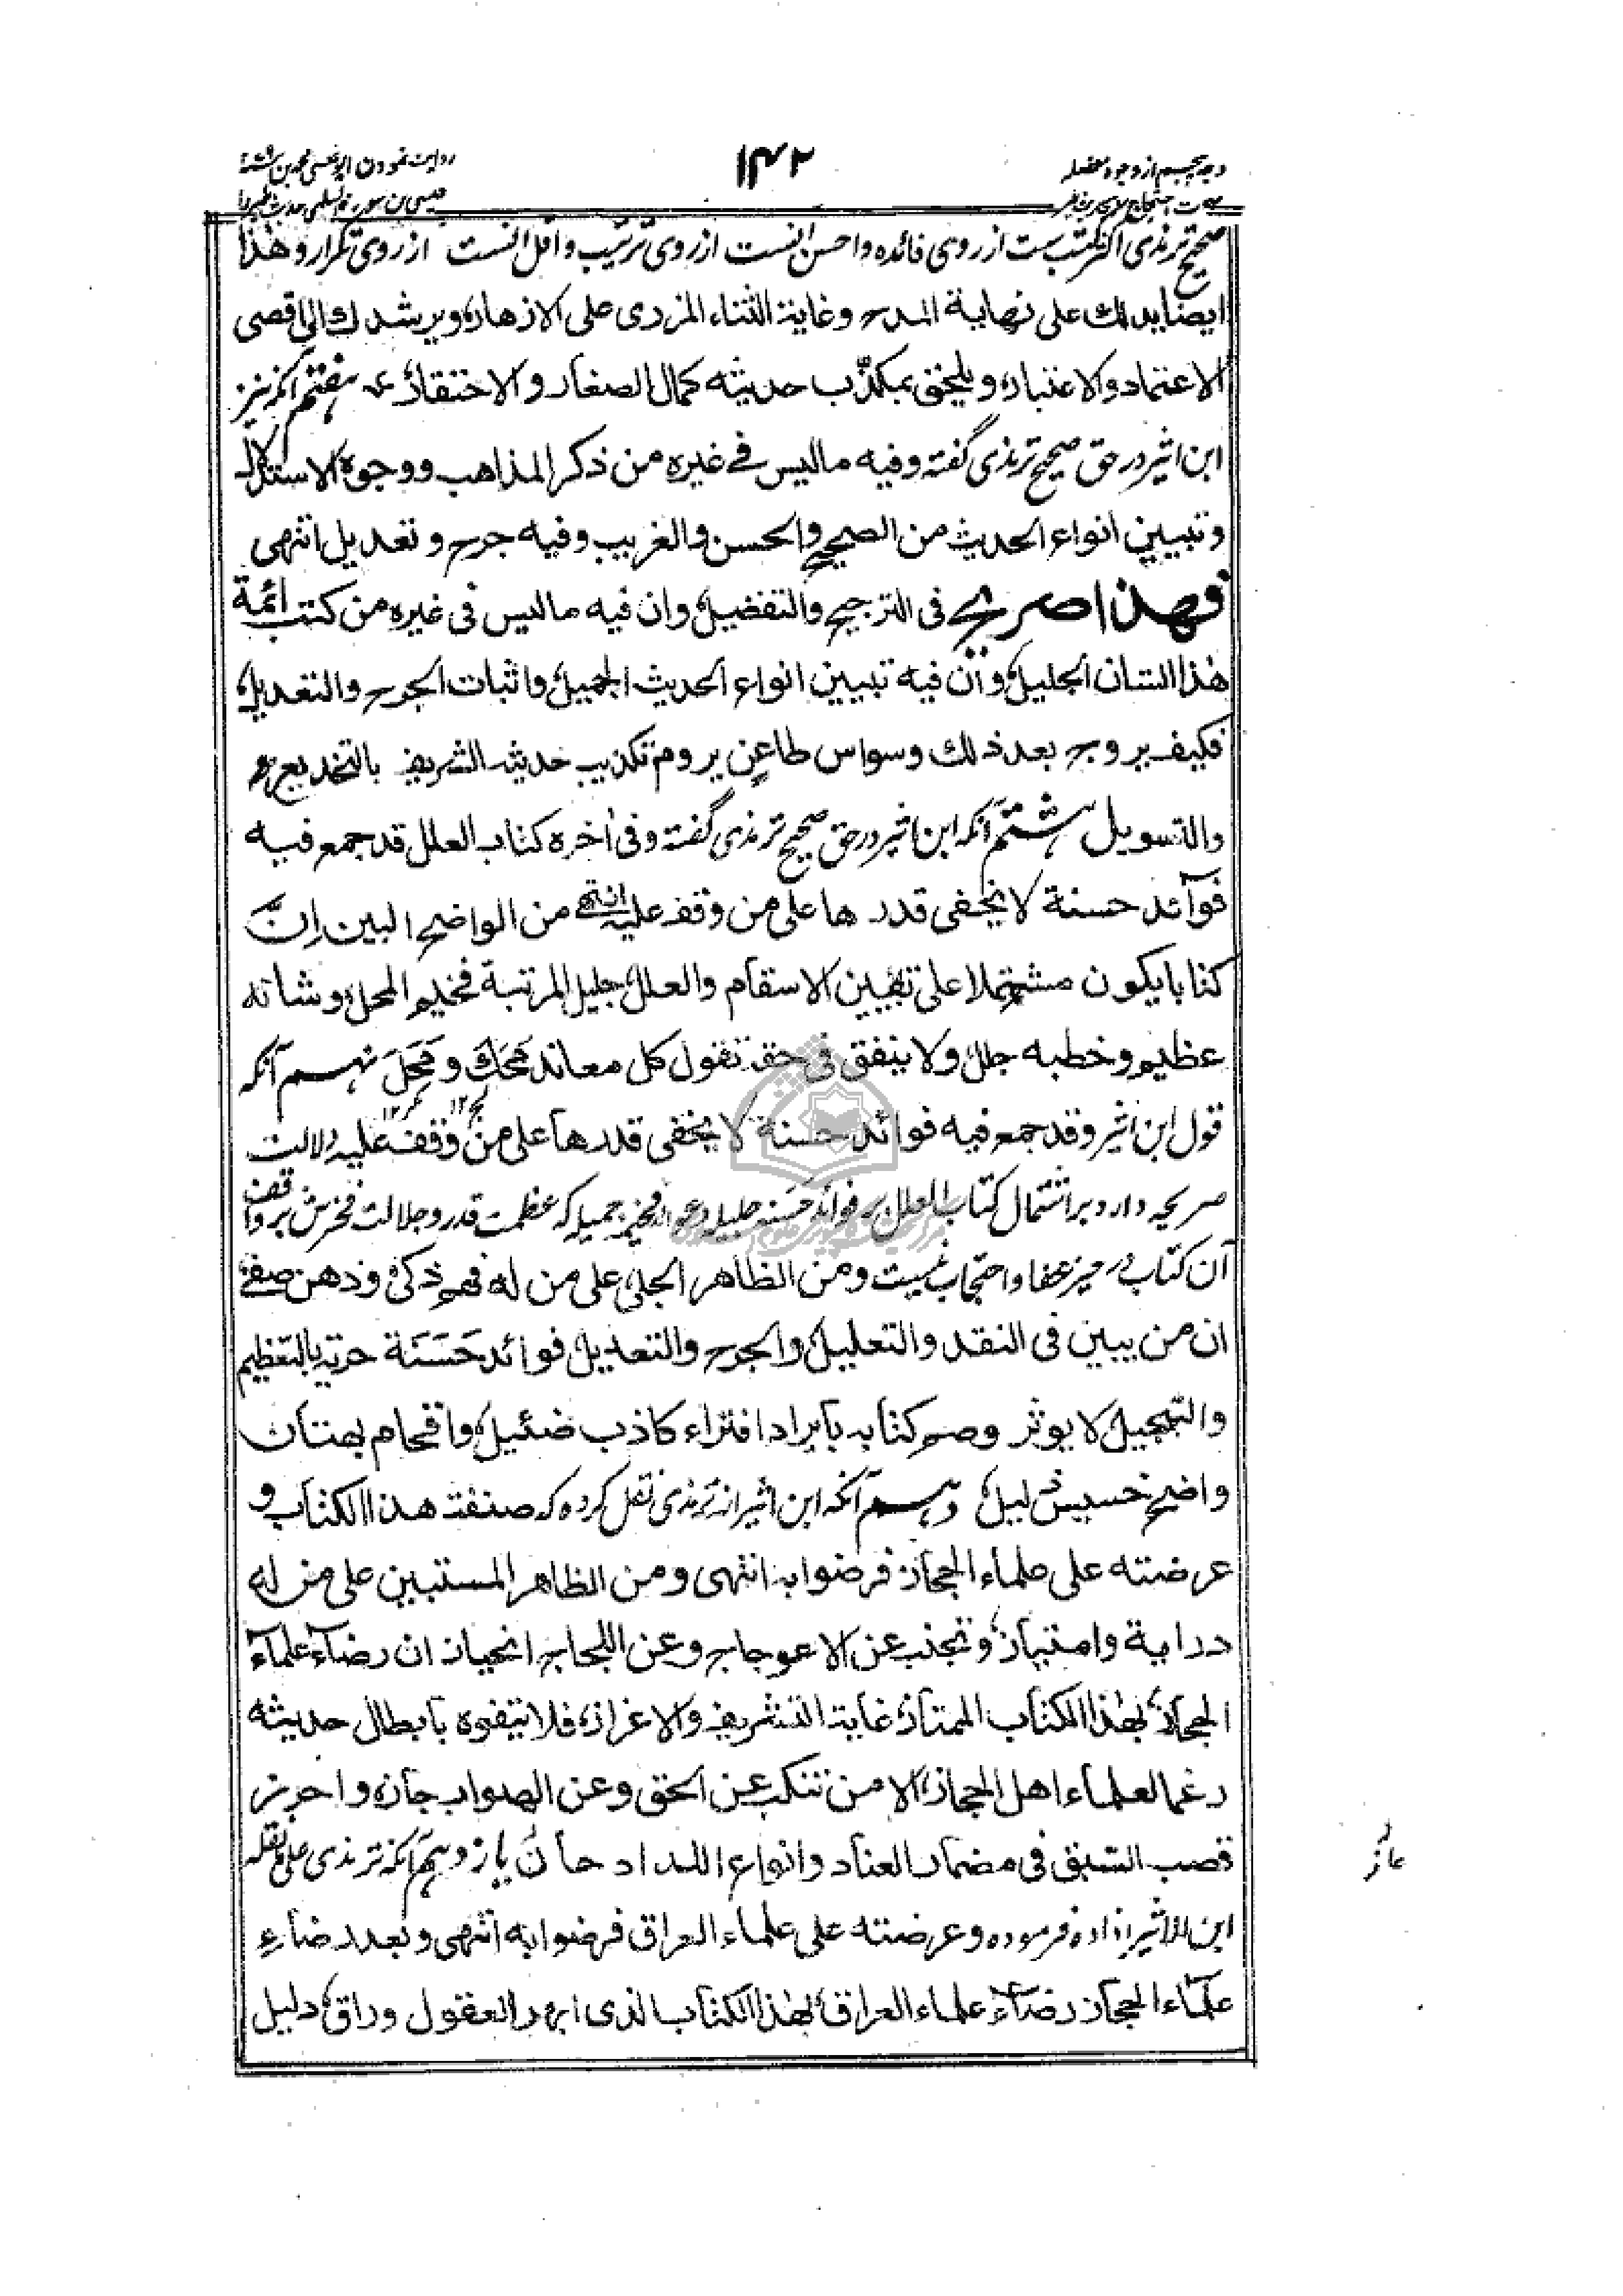 روایت نمودن ابو عیسی محمد بن
۱۴۲
وجه پنجم از وجوه مفصله
عیسی بن سوره السلمی حدیث طیر را
صحیح ترمذی اکثر کتب ست از روی فائده و احسن آنست از روی ترتیب و اقل آنست از روی تکرار و هذا
ایضا یدلك علی نهایة المدح وغایة الثناء المزری علی الازهار ویرشدك الی اقصی
الاعتماد والاعتبار ویلحق بمکذّب حدیثه کمال الصغار والاحتقار هفتم آنکه نیز
ابن اثیر در حق صحیح ترمذی گفته وفیه ما لیس فی غیره من ذکر المذاهب ووجوه الاستدلال
وتبیین انواع الحدیث من الصحیح والحسن والغریب وفیه جرح وتعدیل انتهی
فهذا صریح فی الترجیح والتفضیل وان فیه ما لیس فی غیره من کتب ائمة
هذا الشان الجلیل وان فیه تبیین انواع الحدیث الجمیل واثبات الجرح والتعدیل
فکیف یروج بعد ذلك وسواس طاعن یروم تکذیب حدیثه الشریف بالتخدیع
والتسویل هشتم آنکه ابن اثیر در حق صحیح ترمذی گفته وفی أخره کتاب العلل قد جمع فیه
فوآئد حسنة لا یخفی قدرها علی من وقف علیه انتهی من الواضح البین اِنَّ
کتابا یکون مشتملا علی تبیین الاسقام والعلل جلیل المرتبة فخیم المحل وشانه
عظیم وخطبه جلل ولا ینفق فی حقه تقول کل معاند مَحِك ومَحِل نهم آنکه
لج۱۲ مکر۱۲
قول ابن اثیر وقد جمع فیه فوائد حسنة لا یخفی قدرها علی من وقف علیه دلالت
صریحه دارد بر اشتمال کتاب العلل بر فوائد حَسَنه جلیله وعوائد فخیمه جمیله که عظمت قدر و جلالت فخرش بر واقف
آن کتاب در حیز خفا و احتجاب نیست ومن الظاهر الجلی علی من له فهم ذکی وذهن صفی
ان من یبین فی النقد والتعلیل والجرح والتعدیل فوائد حَسَنَة حریة بالتعظیم
والتبجیل لا یوثر وصم کتابه بایراد افتراء کاذب ضئیل واقحام بهتان
واضح خسیس رلیل دهم آنکه ابن اثیر از ترمذی نقل کرده که صنفت هذا الکتاب و
عرضته علی علماء الحجاز فرضوا به انتهی ومن الظاهر المستبین علی من له
درایة وامتیاز وتجنب عن الاعوجاج وعن اللجاج انحیاز ان رضآء علمآء
الحجاز بهذا الکتاب الممتاز غایة التشریف والاعزاز فلا یتفوه بابطال حدیثه
رغما لعلماء اهل الحجاز الا من تنکب عن الحق وعن الصواب جاز واحرز
قصب السّبق فی مضمار العناد وانواع اللداد حاز یازدهم آنکه ترمذی علی ما نقله
ابن الاثیر افاده فرموده وعرضته علی علماء العراق فرضوا به انتهی وبعد رضاء
علمآء الحجاز رضآء علماء العراق بهذا الکتاب الذی ابهر العقول وراق دلیل